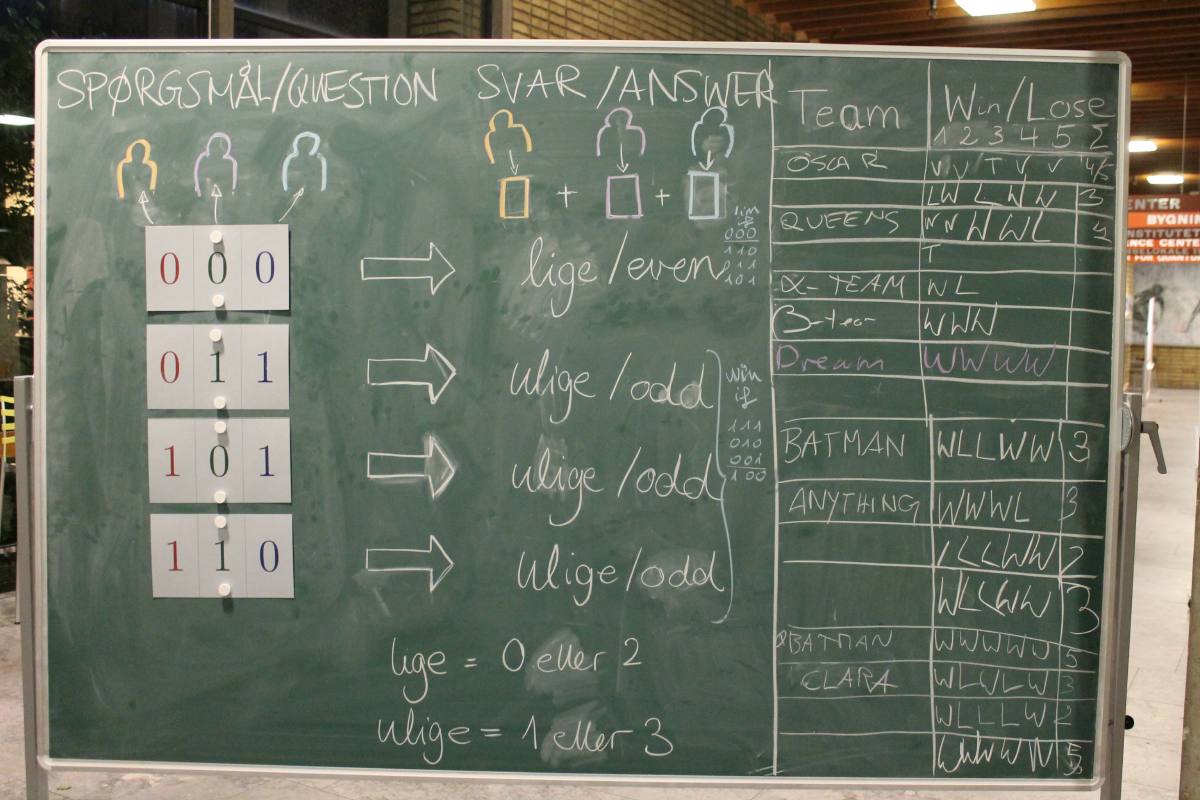 SPØRGSMÅL/QUESTION
SVAR/ANSWER
+ +
0 0 0
lige/even
win
if
000
110
011
101
0 1 1
ulige/odd
1 0 1
ulige/odd
1 1 0
ulige/odd
win
if
111
010
001
100
lige = 0 eller 2
ulige = 1 eller 3
Team Win/Lose
1 2 3 4 5 Σ
OSCAR V V T V V 4/5
LW LWW 3
QUEENS WWWWL 4
T
α-TEAM WL
β-team WWW
Dream WWWW
BATMAN WLLWW 3
ANYTHING WWWL 3
LLLWW 2
WLLWW 3
BATMAN WWWWW 5
CLARA WLWLW 3
WLLLW 2
WWWWW 5
ENTER
BYGNIN
INSTITUTET
ENCE CENTE
FOR QUANTU